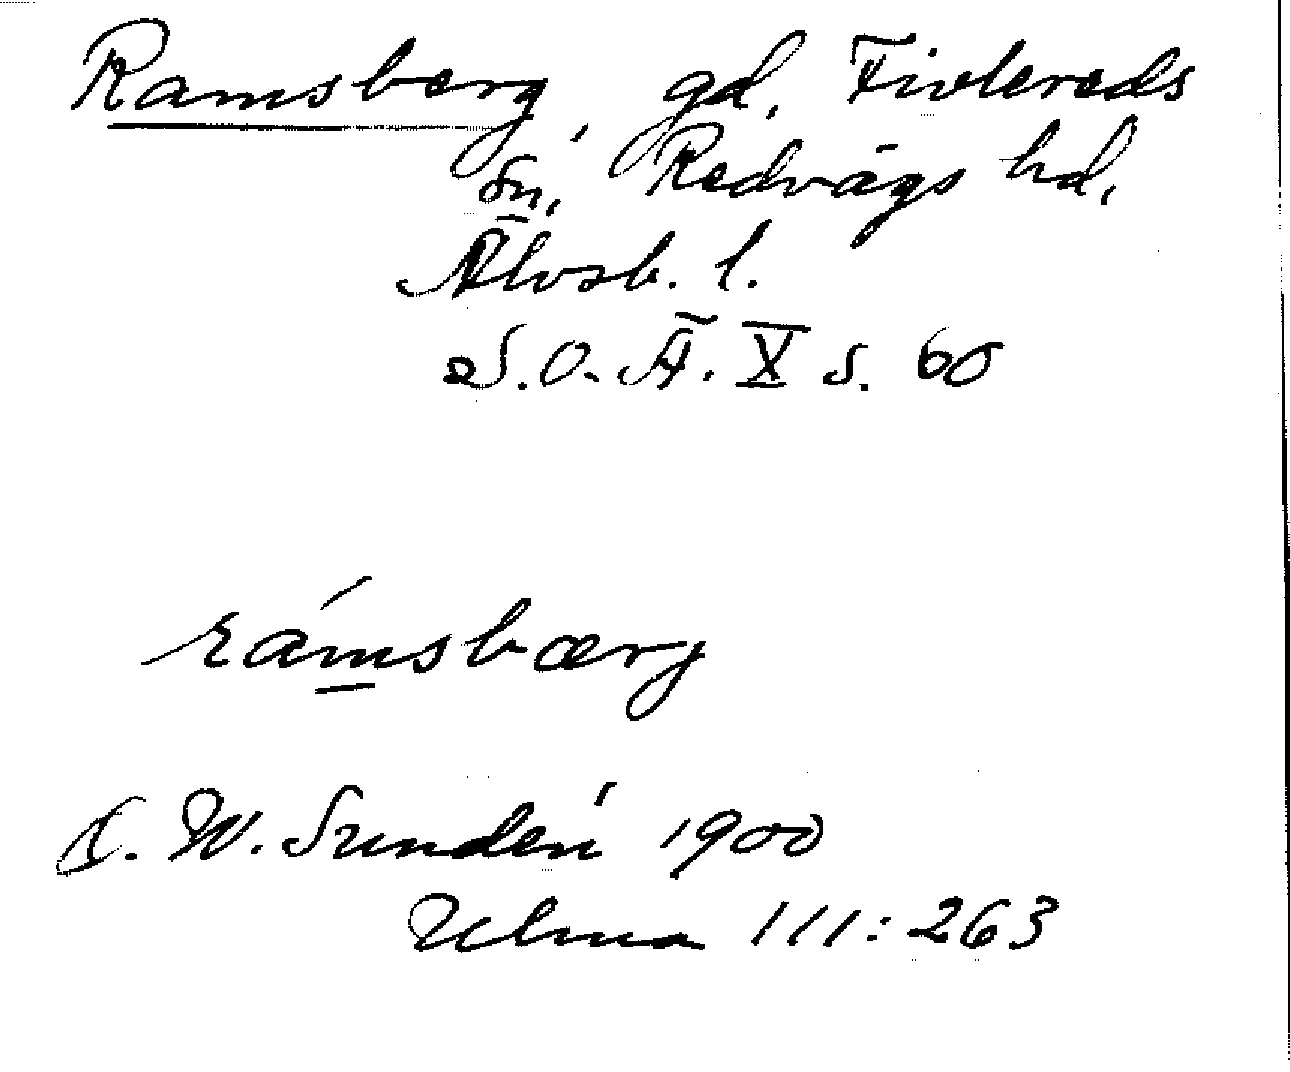 Ramsberg, gd, Fivlereds
sn, Redvägs hd,
Älvsb. l.
S.O. Ä. X s. 60
rámsbærg
D. W. Sundén 1900
Ulma 111:263